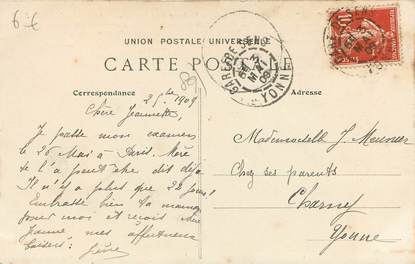 6 €
UNION POSTALE UNIVERSELLE
CARTE POSTALE
Correspondance
Adresse
Chère Jeannette
Je passe mon examen
le 26 Mai à Paris. Mère
de l'a dit déjà
Il n'y a plus que 22 jours!
Embrasse bien ta maman
pour moi et reçois chère
Jeanne mes affectueux
baisers!
Mademoiselle J. Meunier
Chez ses parents
Charny
Yonne
GARE DE SENS
YONNE
09
10